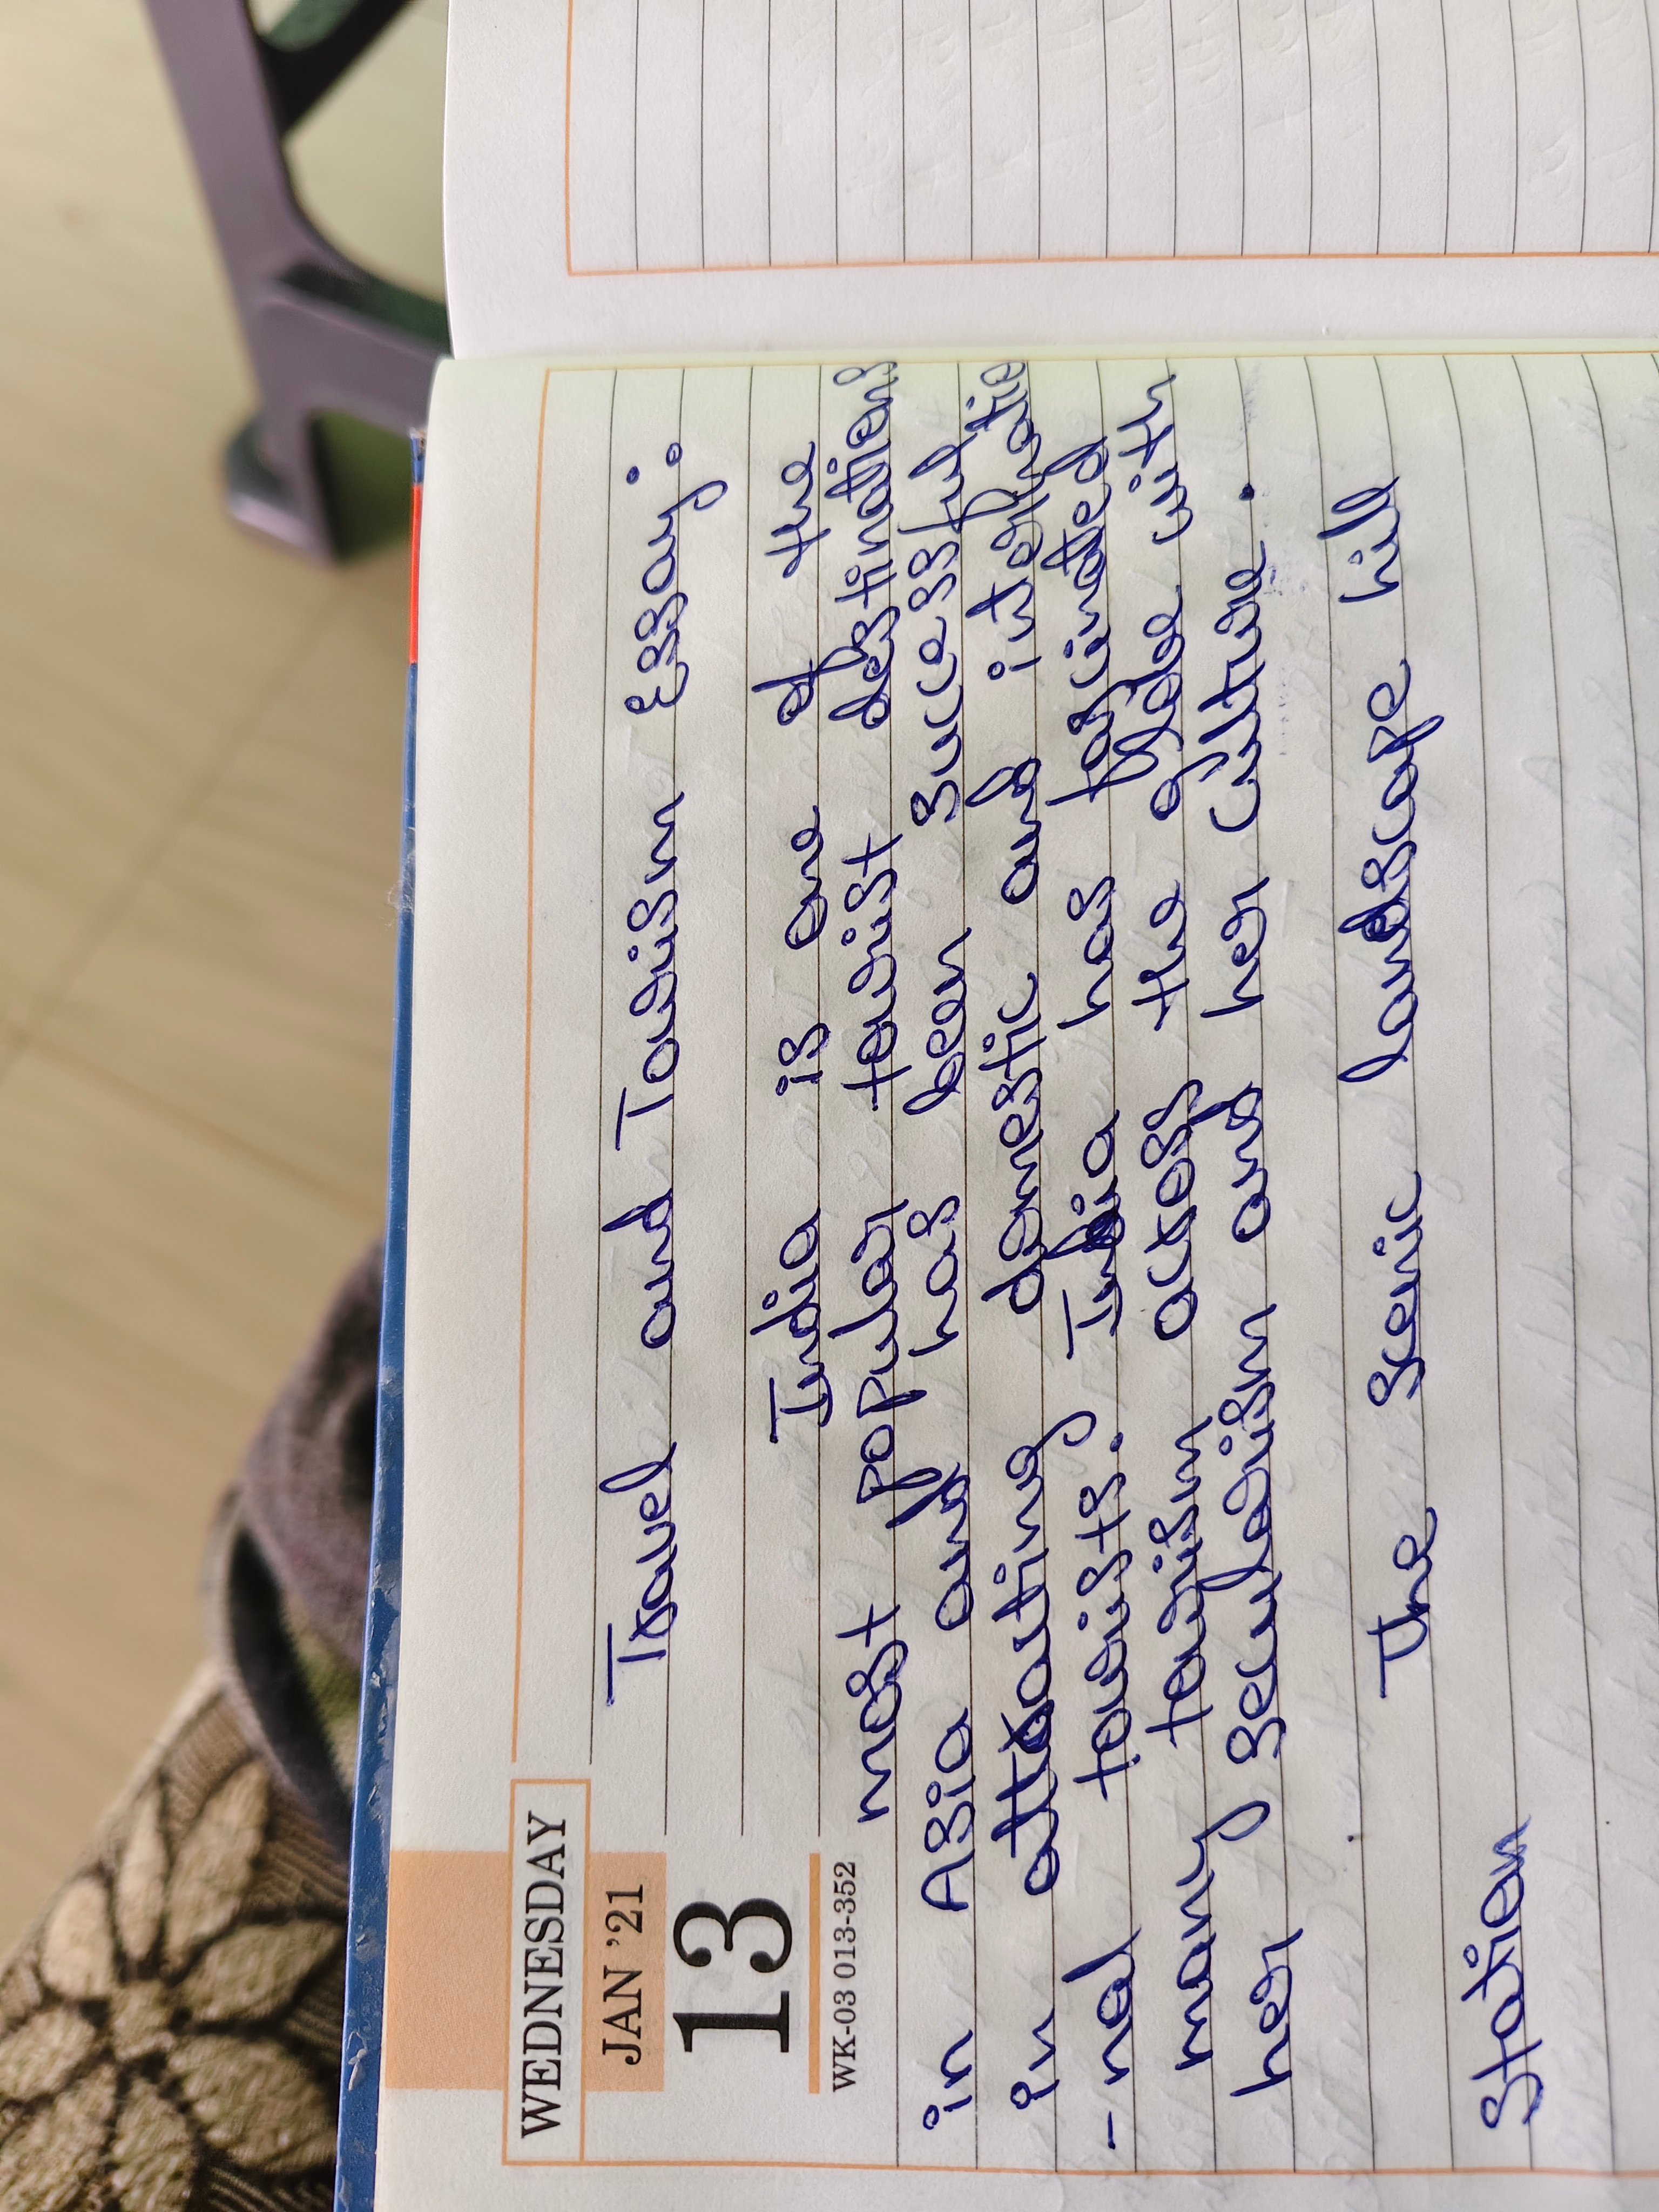 WEDNESDAY
JAN '21
13
WK-03 013-352
Travel and Tourism Essay:
India is one of the
most popular tourist destinations
in Asia and has been successful
in attracting domestic and internatio
- nal tourists. India has fascinated
many tourism across the globe with
her secularism and her culture.
The scenic landscape hill
station